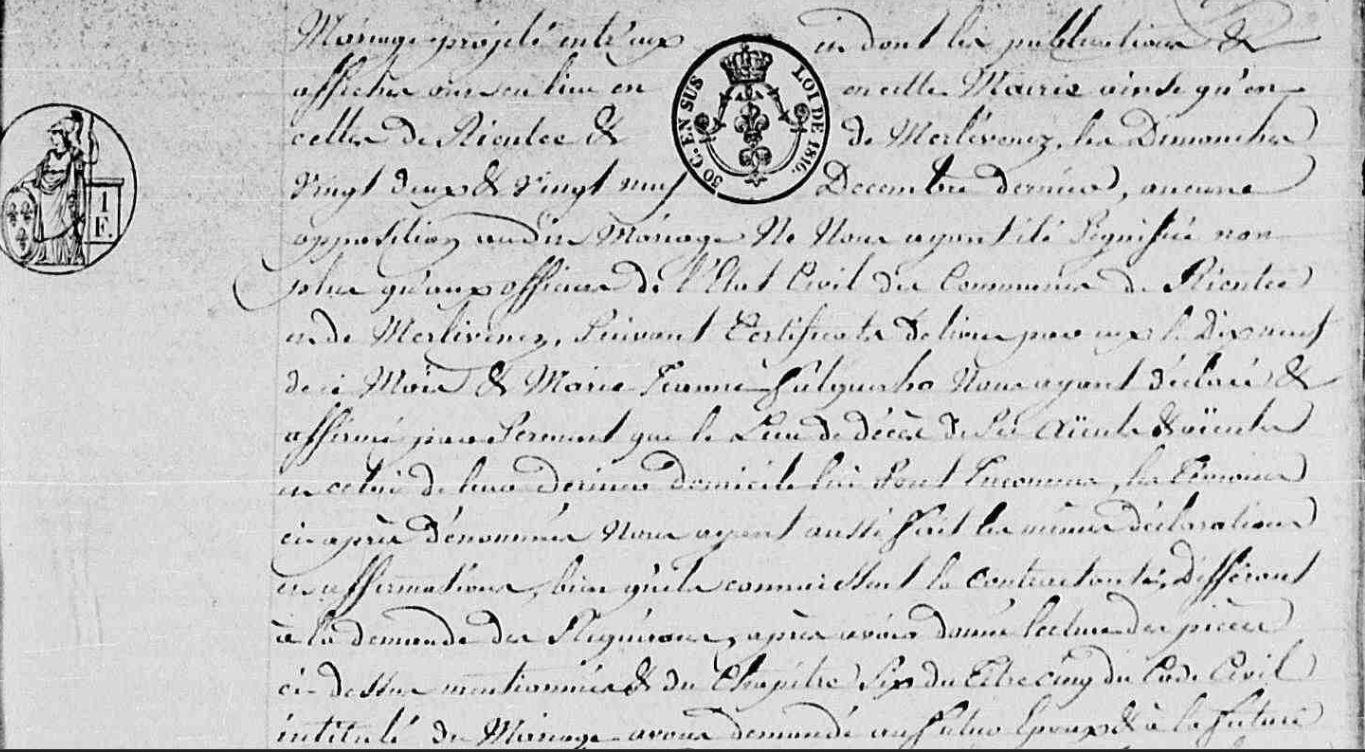 Mariage projeté entr'eux et dont les publications &
affiches ont eu lieu en en cette Mairie ainsi qu'en
celles de Riantec & de Merlévenez, les Dimanches
vingt deux & vingt neuf Decembre dernier, aucune
opposition audit Mariage Ne Nous ayant été Signifiée non
plus qu'aux officiers de l'Etat Civil des Communes de Riantec
et de Merlévenez, Suivant Certificats délivrés par eux le Dix neuf
de ce Mois & Marie Jeanne Nous ayant déclaré &
affirmé par Serment que le Lieu de décès de Ses Aïeuls & aïeules
et celui de leur dernier domicile lui Sont Inconnus, les témoins
ci après dénommés Nous ayant aussi fait les mêmes déclarations
et affirmations, bien qu'ils connaissent la Contractante, Différant
à la demande des Requérans, après avoir donné lecture des pièces
ci-dessus mentionnées & du Chapitre Six du Titre cinq du Code Civil
intitulé du Mariage avons demandé au futur Epoux & à la future
30 C. EN SUS
LOI DE 1816.
1
F.